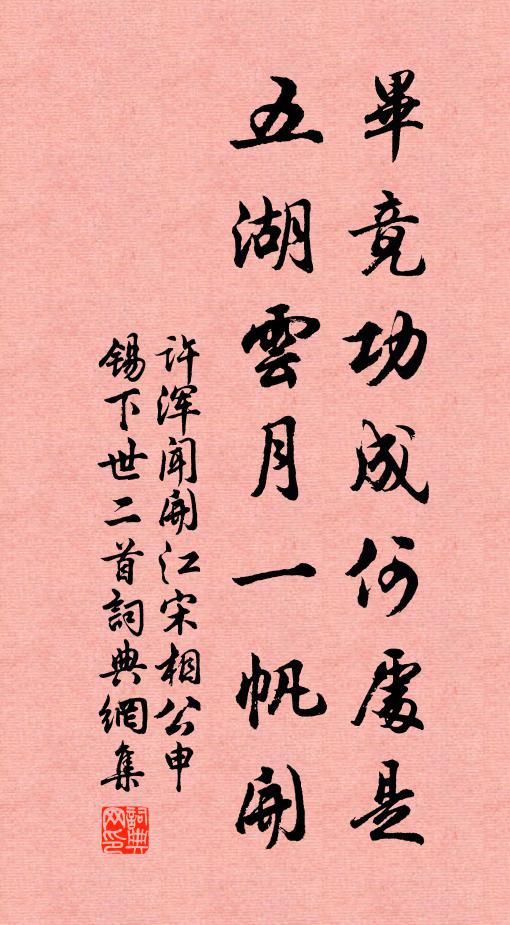 畢竟功成何處是
五湖雲月一帆開
许浑闻開江宋相公申
锡下世二首詞典網集
詞典
网印